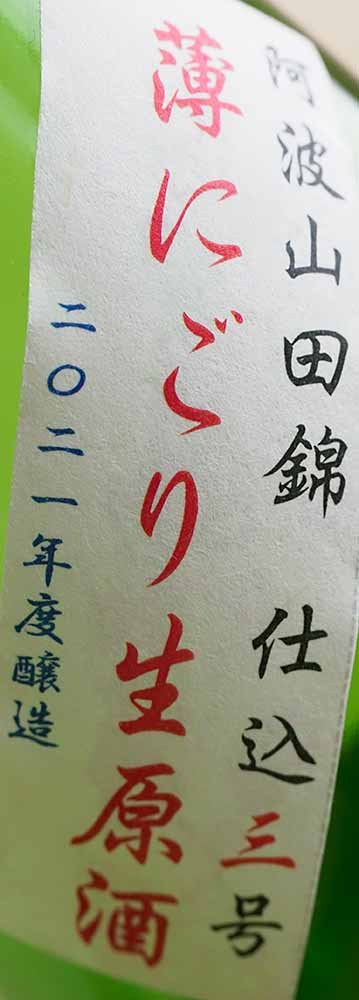 阿波山田錦 仕込三号
薄にごり生原酒
二〇二一年度醸造